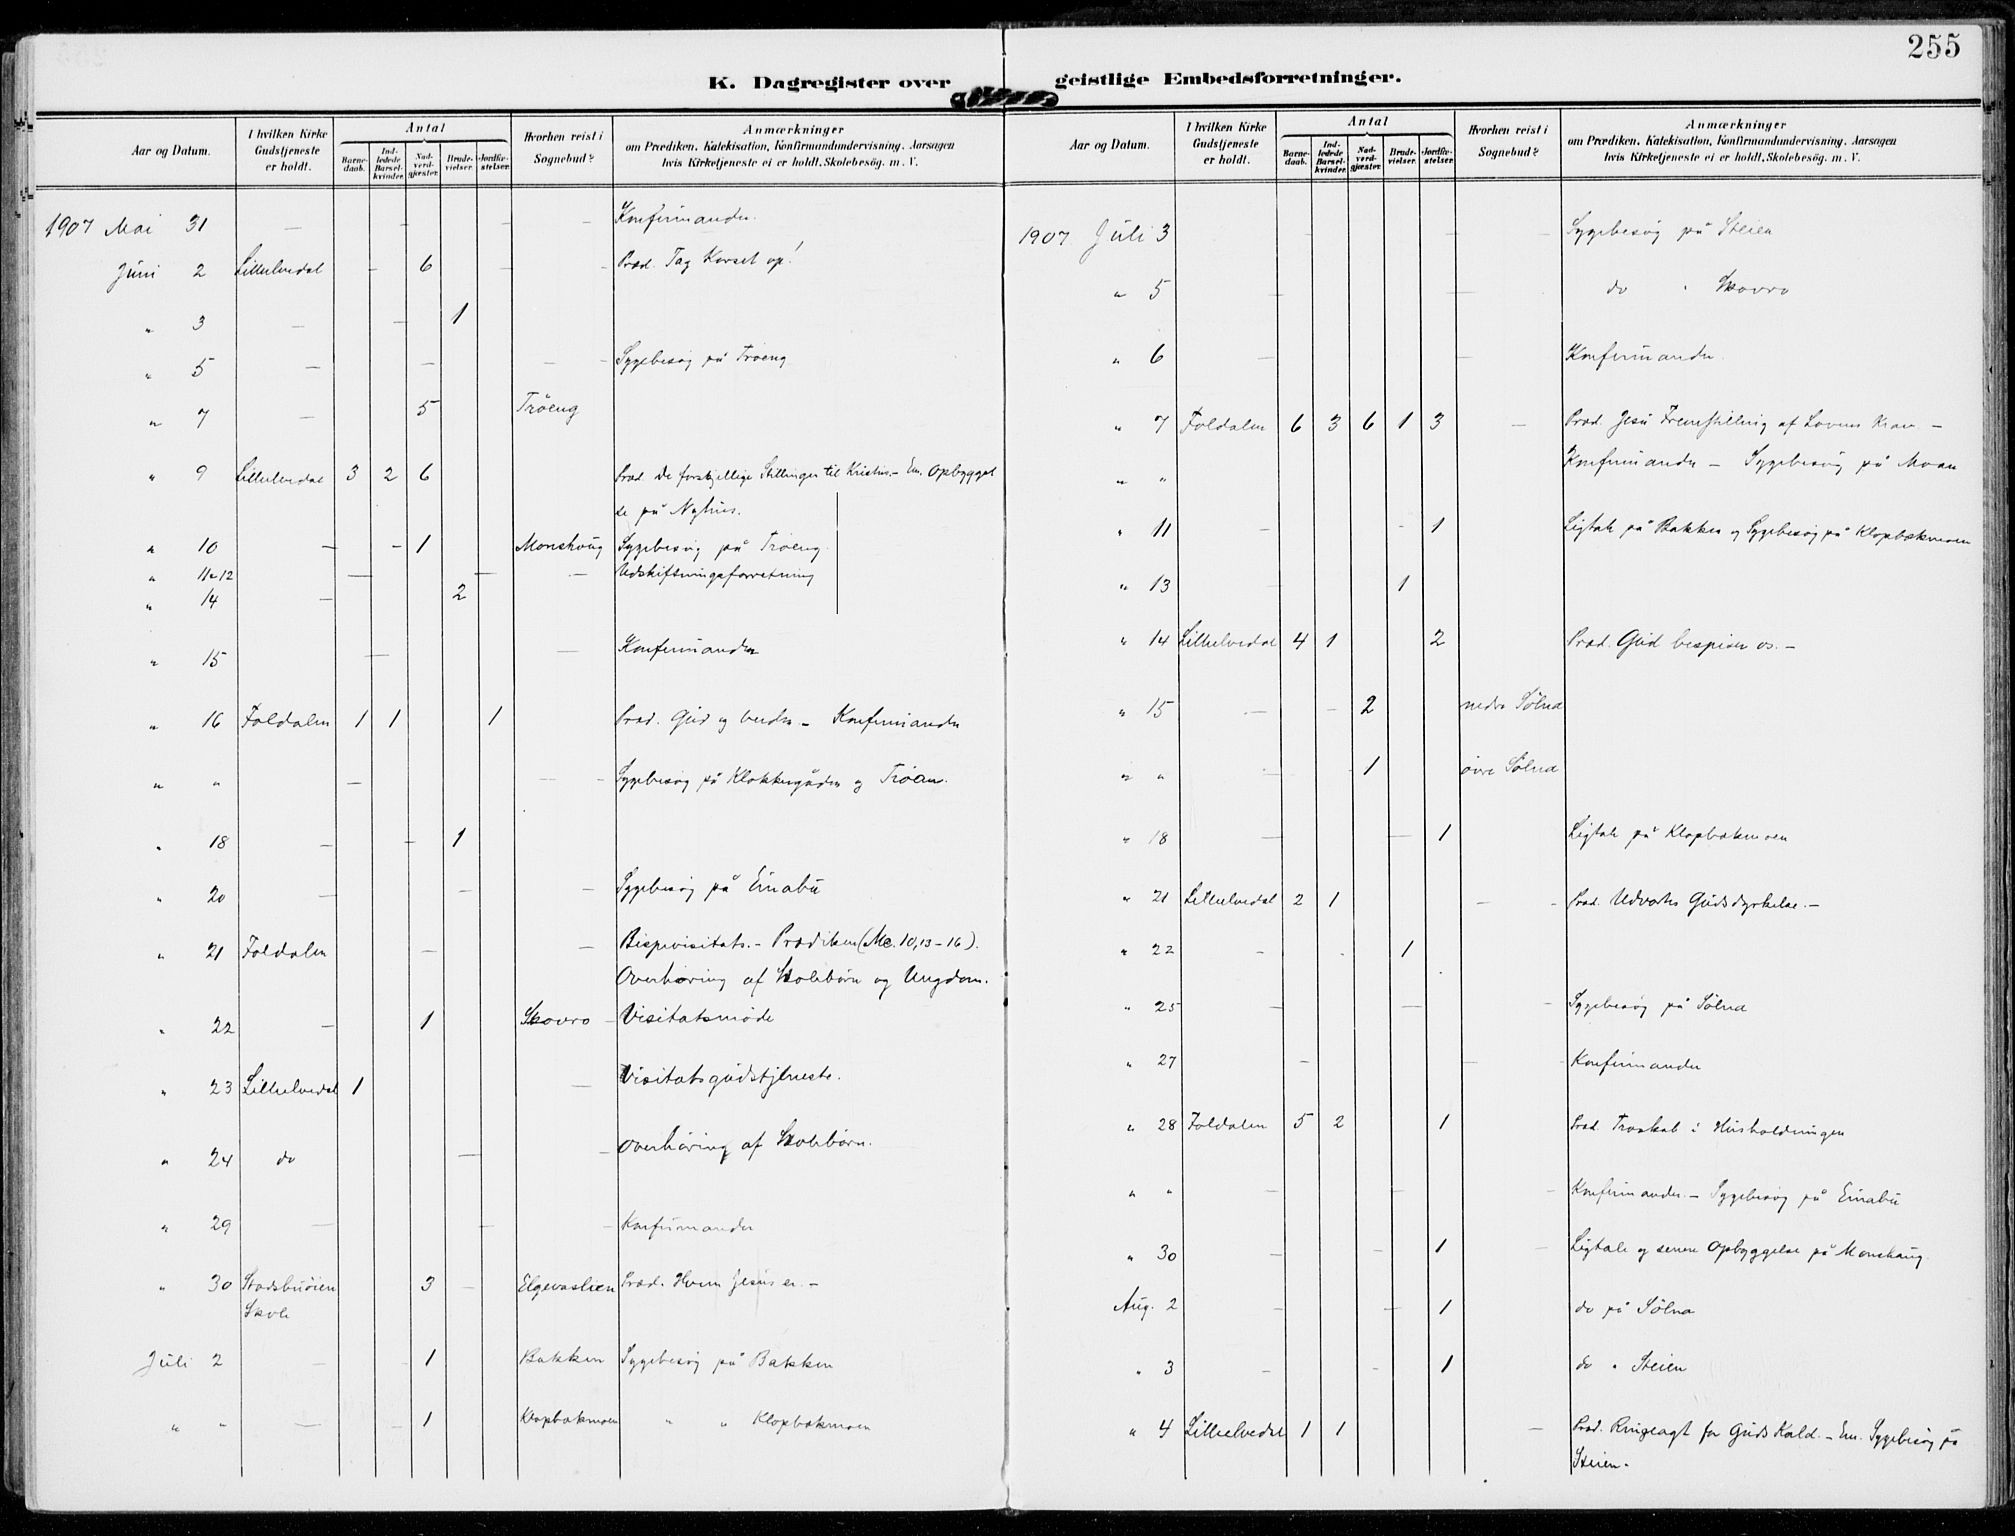 255
K. Dagregister over geistlige Embedsforretninger.
Aar og Datum. I hvilken Kirke Gudstjeneste er holdt. Antal Barne-daab. Ind-ledede Barsel-kvinder. Nad-verd-gjæster. Brude-vielser. Jordfæ-stelser. Hvorhen reist i Sognebud? Anmærkninger om Prædiken, Katekisation, Konfirmandundervisning, Aarsagen hvis Kirketjeneste ei er holdt, Skolebesög. m. V.
1907 Mai 31 — — — — — Konfirmander.
Juni 2 Lilleelvedal — 6 — — Præd. Tag Korset op!
" 3 — — 1
" 5 — — — — Sygebesøg på Trøeng
" 7 — 5 Trøeng
" 9 Lilleelvedal 3 2 6 Præd. De forskjellige Stillinger til Kristus. – Em. Opbyggel
se på Nyhus.
" 10 — — 1 Monshaug Sygebesøg på Trøeng.
" 11–12 — — — Udskiftningsforretning
" 14 — 2
" 15 — — Konfirmander
" 16 Foldalen 1 1 1 Præd. Gud og verden – Konfirmander
" " — — — Sygebesøg på Klokkergården og Trøan.
" 18 — — 1
" 20 — — — Sygebesøg på Einabu
" 21 Foldalen — — Bispevisitats. – Prædiken (Mc. 10, 13–16).
Overhøring af Skolebørn og Ungdom.
" 22 — 1 Skovro – Visitatsmøde
" 23 Lilleelvedal 1 — Visitatsgudstjeneste.
" 24 do — — Overhøring af Skolebørn.
" 29 — — — Konfirmander
" 30 Stadsbuøien 3 — Elgevaslien Præd. Hvem Jesus er. –
Skole
Juli 2 — — 1 Bakken Sygebesøg på Bakken
" " — — 1 Klopbækmoen " " Klopbækmoen
Aar og Datum. I hvilken Kirke Gudstjeneste er holdt. Antal Barne-daab. Ind-ledede Barsel-kvinder. Nad-verd-gjæster. Brude-vielser. Jordfæ-stelser. Hvorhen reist i Sognebud? Anmærkninger om Prædiken, Katekisation, Konfirmandundervisning, Aarsagen hvis Kirketjeneste ei er holdt, Skolebesög. m. V.
1907 Juli 3 — — — Sygebesøg på Steien
" 5 — — — do " Skovro
" 6 — — Konfirmander.
" 7 Foldalen 6 3 6 1 3 — Præd. Jesu Fremstilling af Lovens Krav. –
" " Konfirmander – Sygebesøg på Moan
" 11 — — 1 Ligtale på Bakken og Sygebesøg på Klopbækmoen
" 13 — 1
" 14 Lilleelvedal 4 1 2 Præd. Gud bespiser os. –
" 15 — — 2 nedre Sølna
" " — — 1 øvre Sølna
" 18 — — 1 Ligtale på Klopbækmoen
" 21 Lilleelvedal 2 1 — — Præd. Udvortes Gudsdyrkelse. –
" 22 — — 1
" 25 — — — Sygebesøg på Sølna
" 27 — — — Konfirmander
" 28 Foldalen 5 2 1 Præd. Troskab i Husholdningen
" " — — — Konfirmander. – Sygebesøg på Einabu
" 30 — — 1 — Ligtale og senere Opbyggelse på Monshaug.
Aug. 2 — — 1 do på Sølna
" 3 — — 1 do " Steien
" 4 Lilleelvedal 1 1 — Præd. Ringeagt for Guds Kald. – Em. Sygebesøg på
Steien.